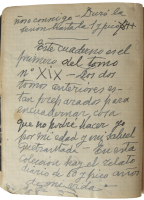 mos conmigo - Duró la
Este cuaderno es el
primero del tomo
nº XIX - Los dos
tomos anteriores es-
tan preparados para
encuadernar, cosa
que no podré hacer yo
por mi edad y mi salud
quebrantada - En esta
coleccion hay el relato
diario de 18 y pico años
de mi vida